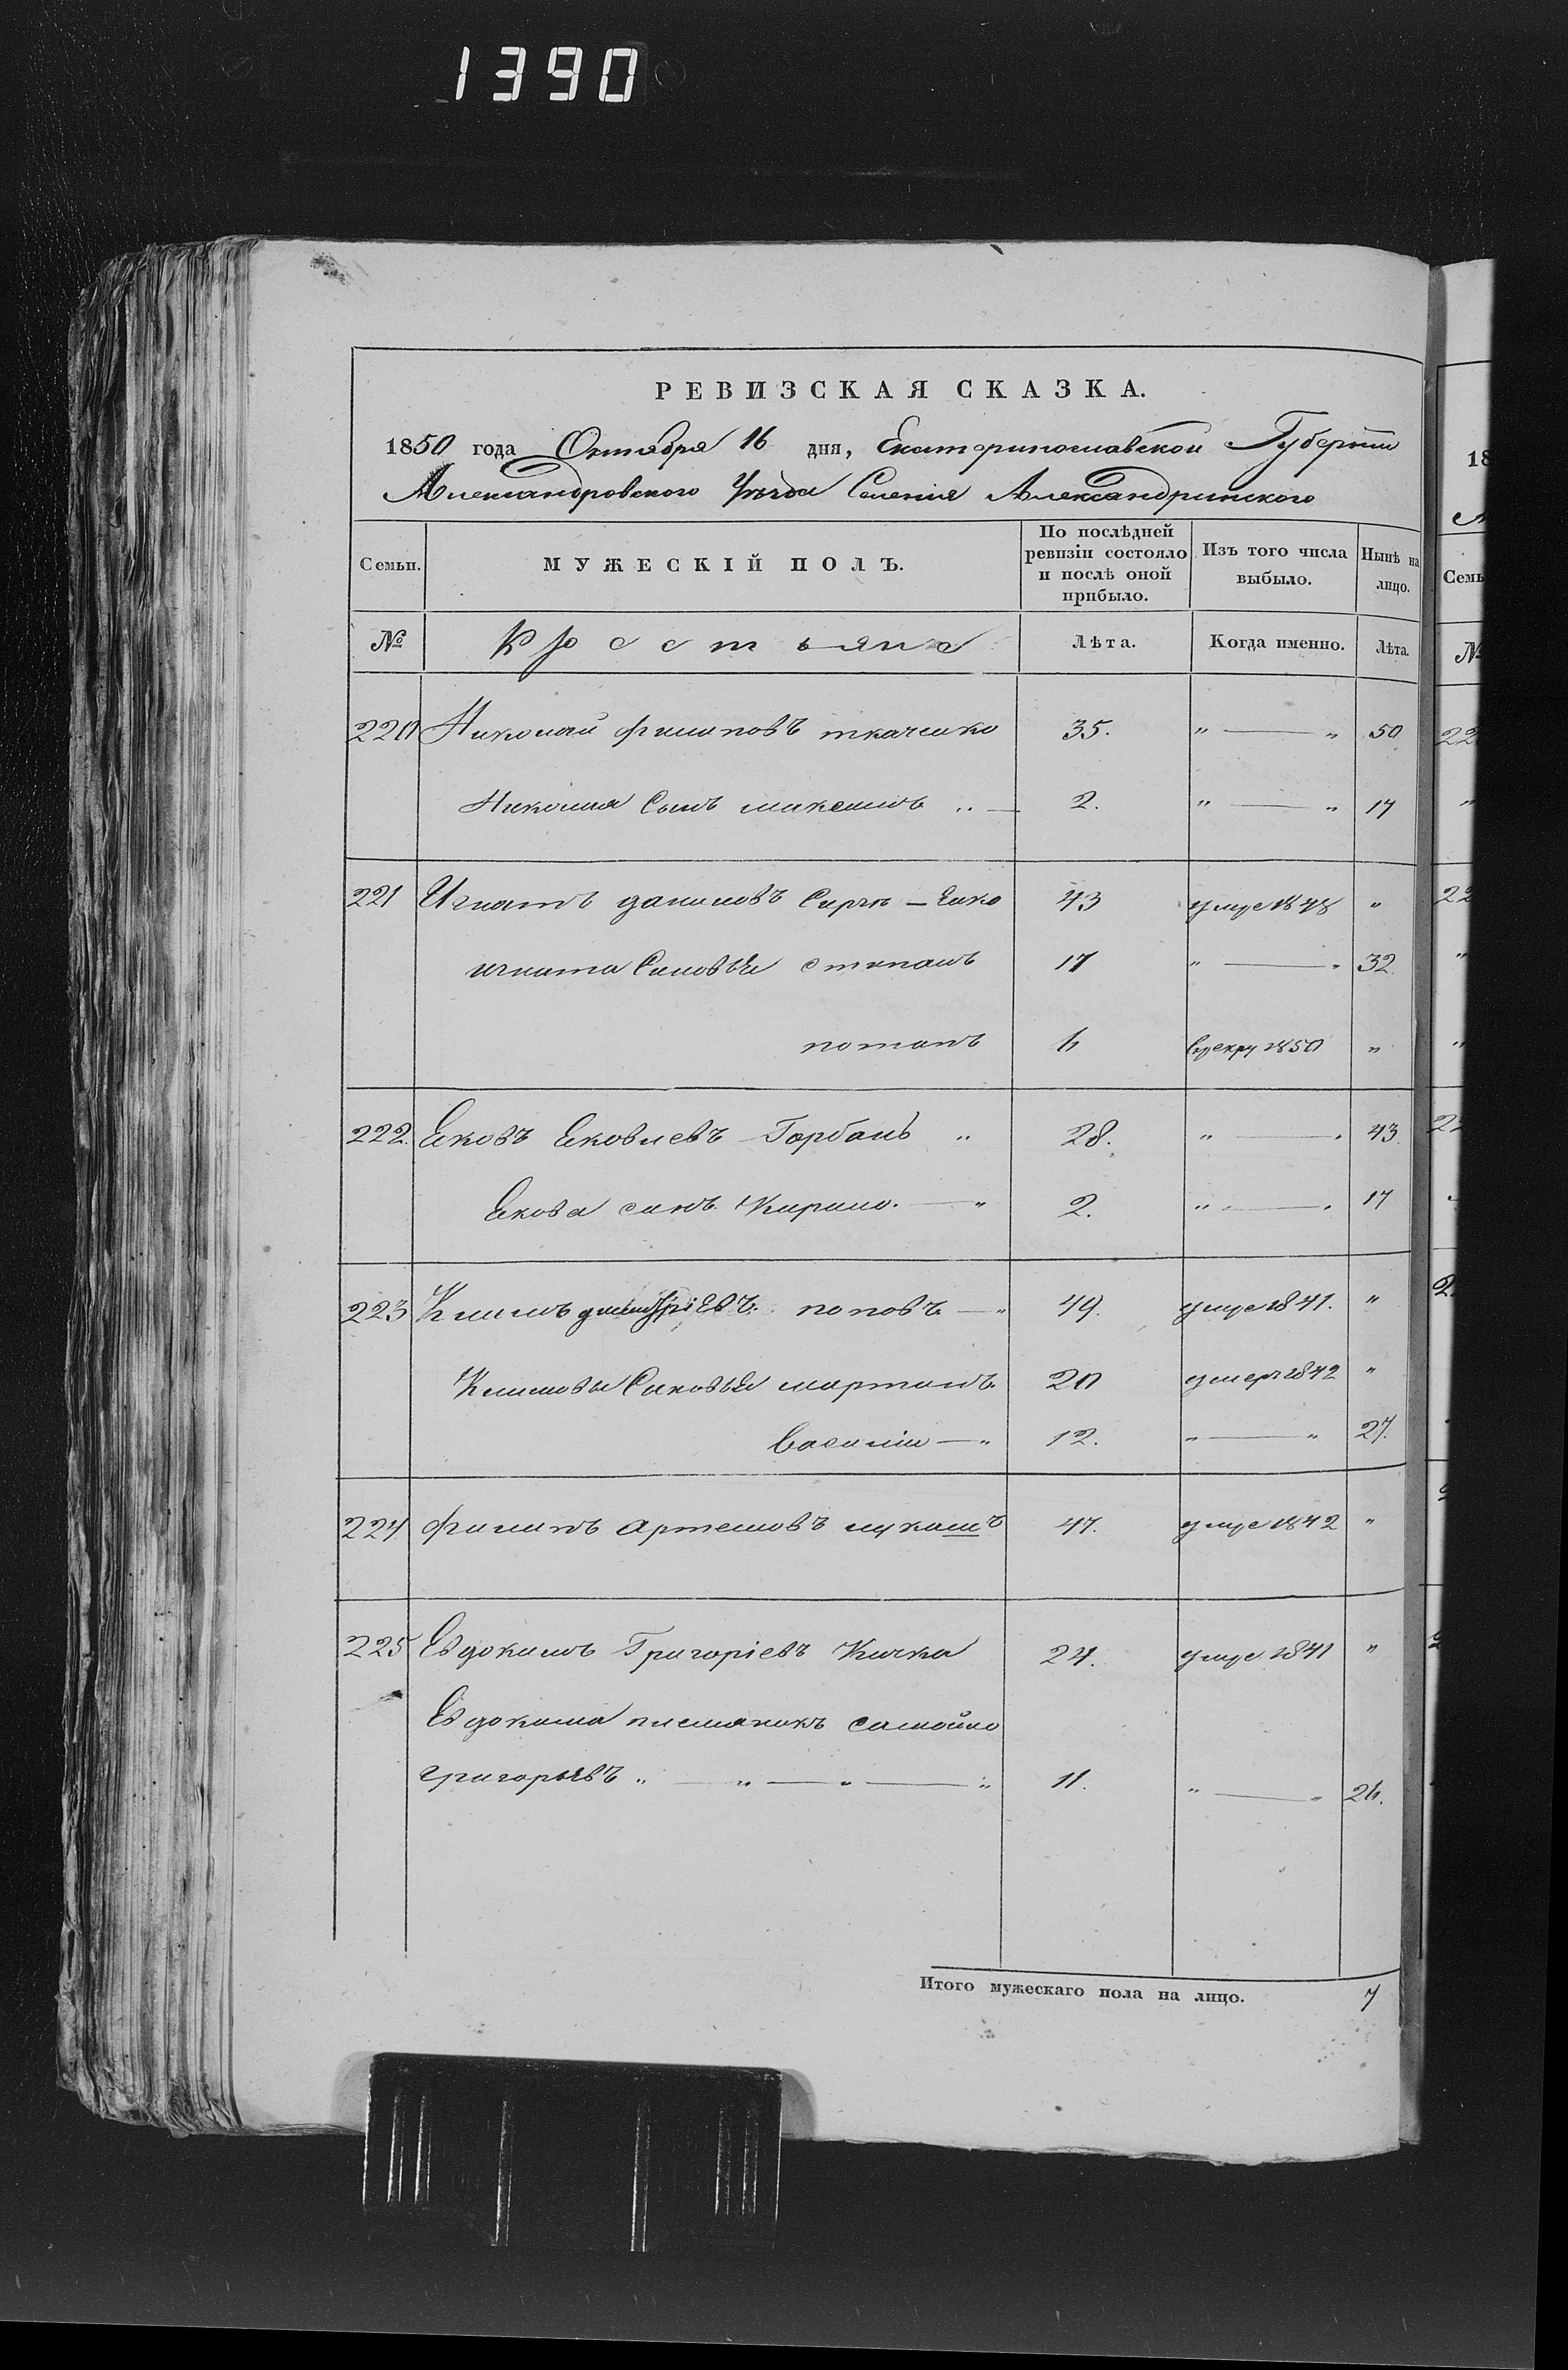 1390
РЕВИЗСКАЯ СКАЗКА.
1850 года Октября 16 дня, Екатеринославской Губернiи
Александровского Уѣзда Селенiя Александринского
Семьи. МУЖЕСКIЙ ПОЛЪ. По послѣдней ревизiи состояло и послѣ оной прибыло. Изъ того числа выбыло. Нынѣ на лицо.
№ Крестьяне Лѣта. Когда именно. Лѣта.
220 Николай филиповъ ткаченко 35. " — " 50
Николая Сынъ максимъ .. — 2. " — " 17
221 Игнатъ даниловъ 43 умре 1848 "
игната Синовья степанъ 17 " — " 32.
потапъ 6 врекру 1850 "
222. Яковъ Яковлевъ Горбань .. 28. " — " 43.
Якова синъ Кирило. — " 2. " — " 17
223 Климъ дмитрiевъ поповъ — " 49. умре 1841. "
Климовы Синовья мартинъ 20 умерь 1842 "
Василiй — " 12. " — " 27.
224. филипъ артемовъ лукашъ 47. умре 1842 "
225 Евдокимъ Григорiевъ Кичка 24. умре 1841 "
Евдокима племяникъ самойло
григорьевъ " — " — " — " 11. " — " 26.
Итого мужескаго пола на лицо. 7